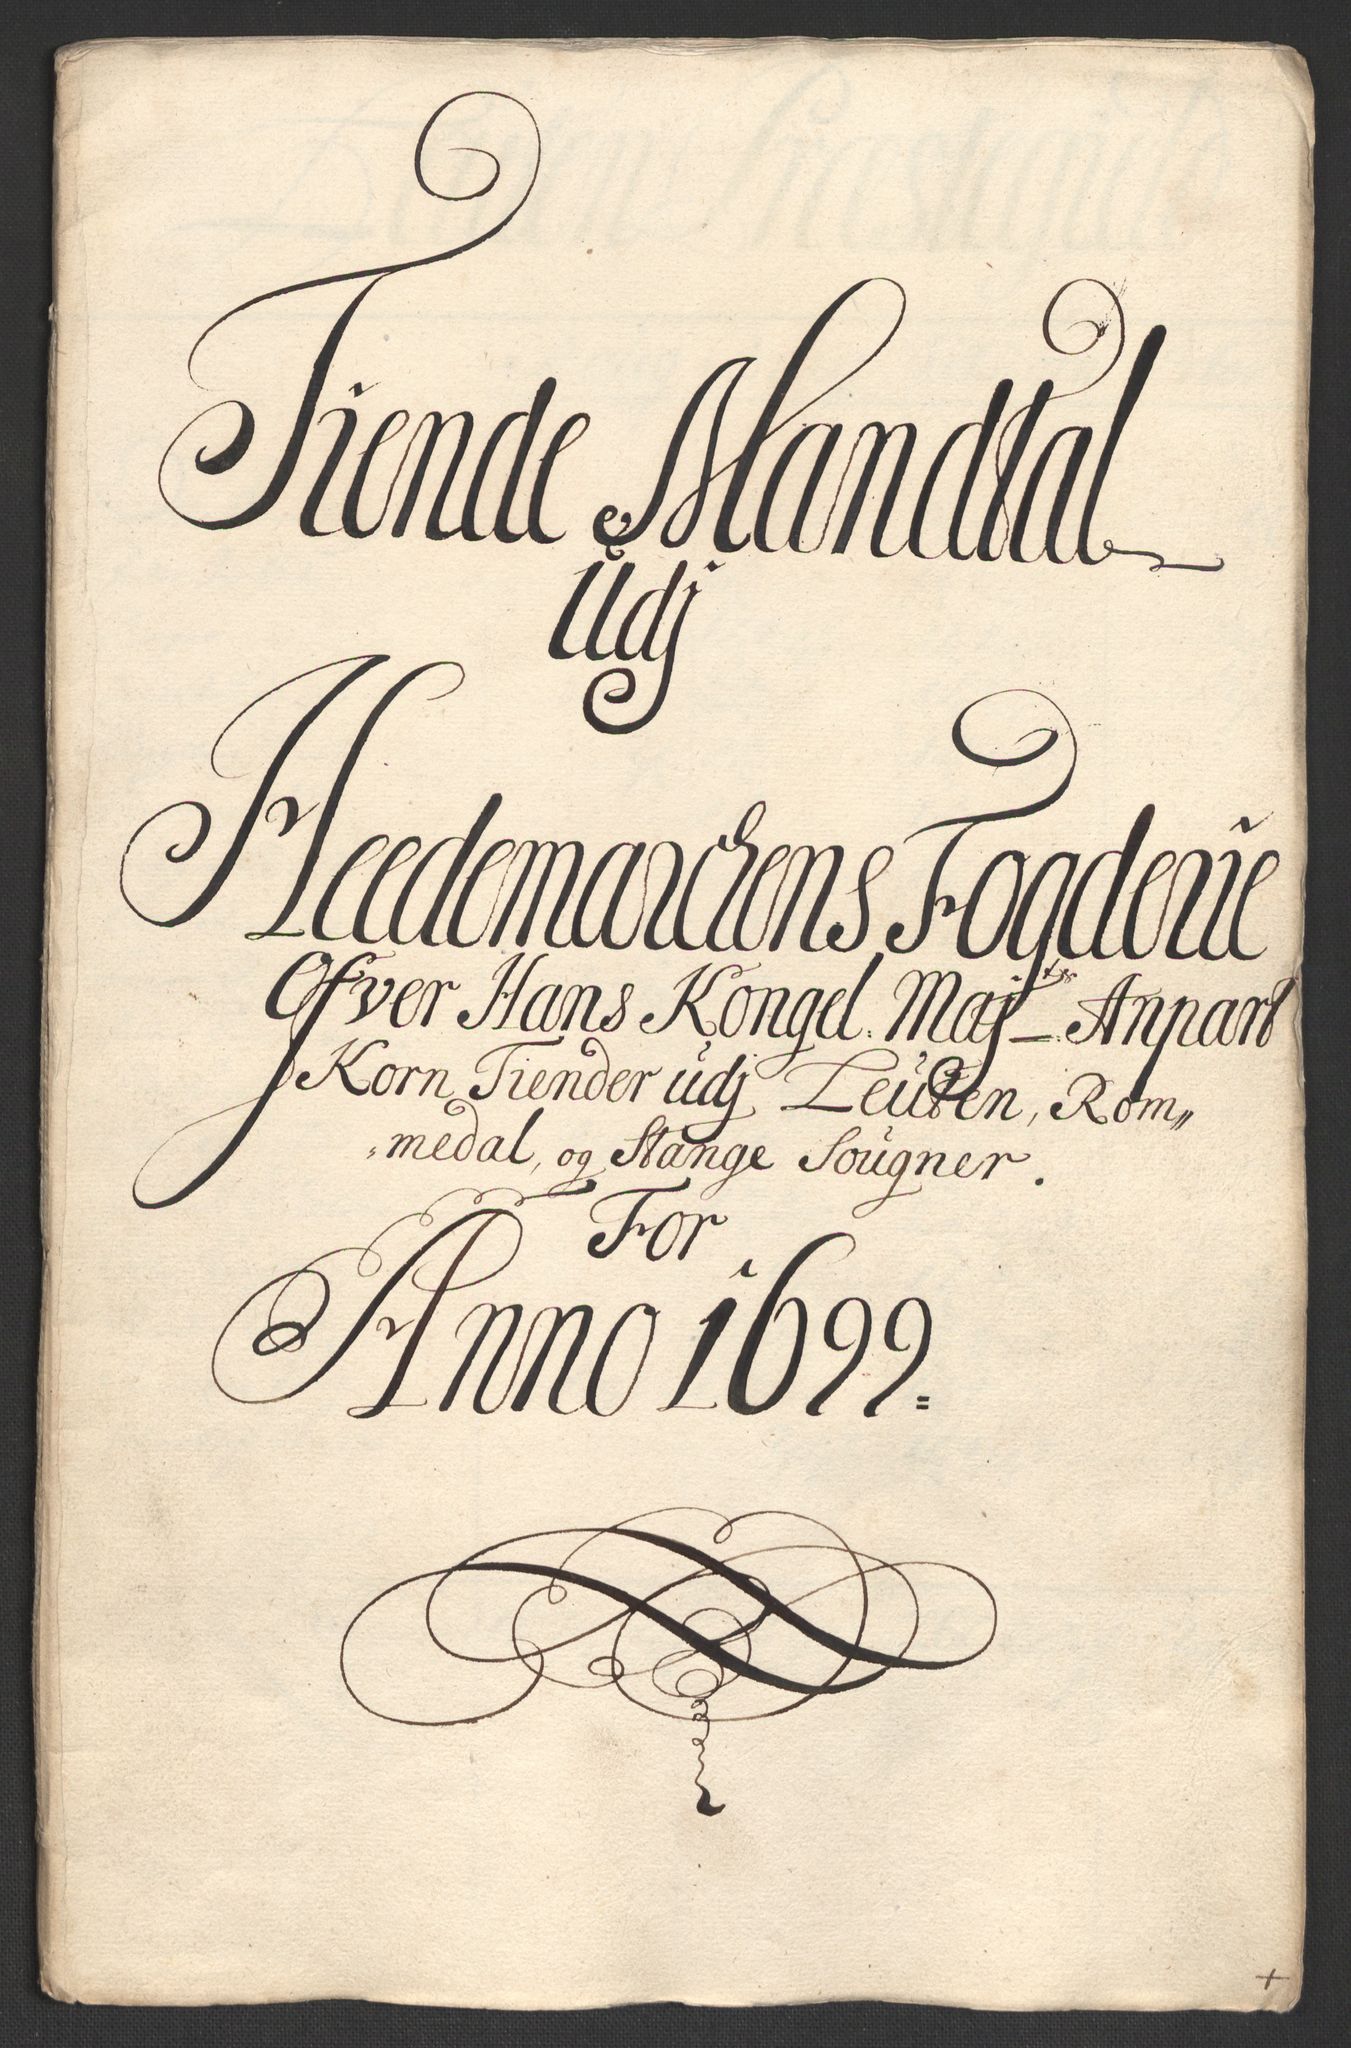 Tiende Mandtal
Udj
Heedemarckens Fogderie
Ofver Hans Kongel. Maj^ts Anpart
Korn Tiender udj Leuten, Rom„
„medal, og Stange Sougner.
For
Anno 1699=
+